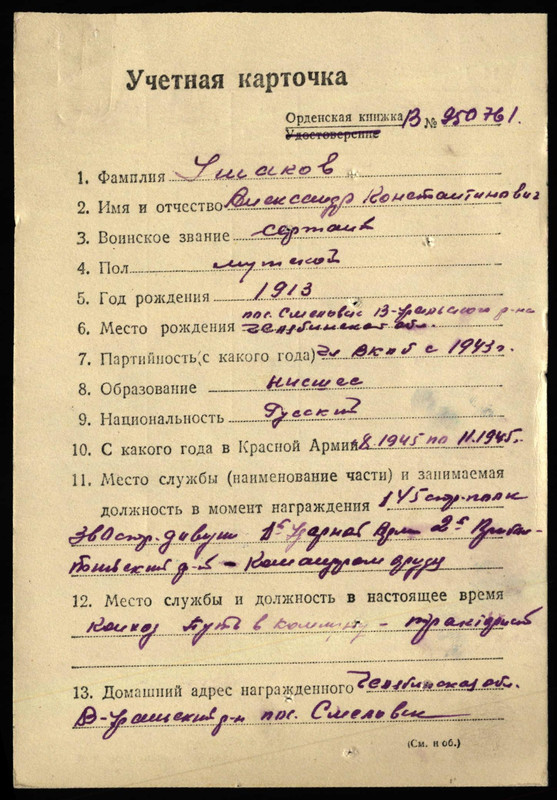 Учетная карточка
Орденская книжка В № 950761.
Удостоверение
1. Фамилия Ушаков
2. Имя и отчество Александр Константинович
3. Воинское звание сержант
4. Пол мужской
5. Год рождения 1913
пос. Смеловск В-Уральского р-на
6. Место рождения Челябинская обл.
7. Партийность (с какого года) Чл ВКПб с 1943 г.
8. Образование низшее
9. Национальность Русский
10. С какого года в Красной Армии 1945 по 11.1945г.
11. Место службы (наименование части) и занимаемая
должность в момент награждения 145 стр. полк
стр. дивизии 1й Ударной Арм 2й Прибал-
тийский - Командиром
12. Место службы и должность в настоящее время
Колхоз Путь в коммуну - тракторист
13. Домашний адрес награжденного Челябинская обл.
В-Уральский р-н пос. Смеловск
(См. н об.)